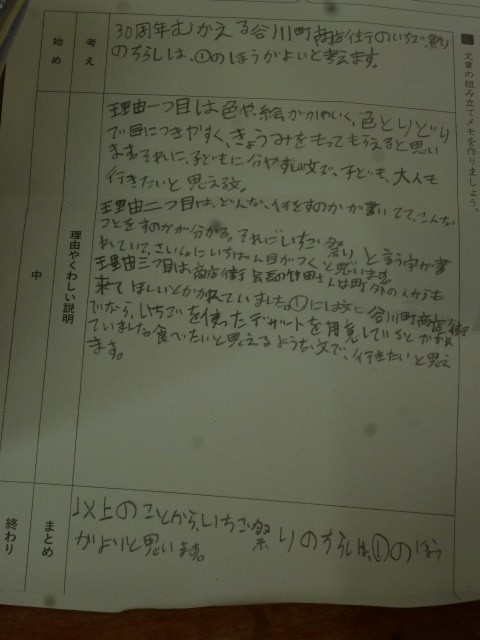 文章の組み立てメモを作りましょう。
始め
考え
30周年むかえる谷川町商店街のいちご祭り
のちらしは、①のほうがよいと考えます。
中
理由やくわしい説明
理由一つ目は色や、絵がかわいく、色とりどり
で目につきやすく、きょうみをもってもらえると思い
ます。それに、子どもに分やすい文で、子ども、大人も
行きたいと思える文。
理由二つ目は、どんな、何をすのかが書いてて、こんな
ことをすのかが分かる。それにいちご祭りと言う字が書
れていて、さいしょにいちばん目がつくと思います。
理由三つ目は、商店街会長の竹田さんは町外の人からも
来てほしいとかかれていました。①には文に谷川町商店街
ていました。食べたいと思えるような文で、行きたいと思え
ます。
終わり
まとめ
以上のことから、いちご祭りのちらしは、①のほう
がよいと思います。